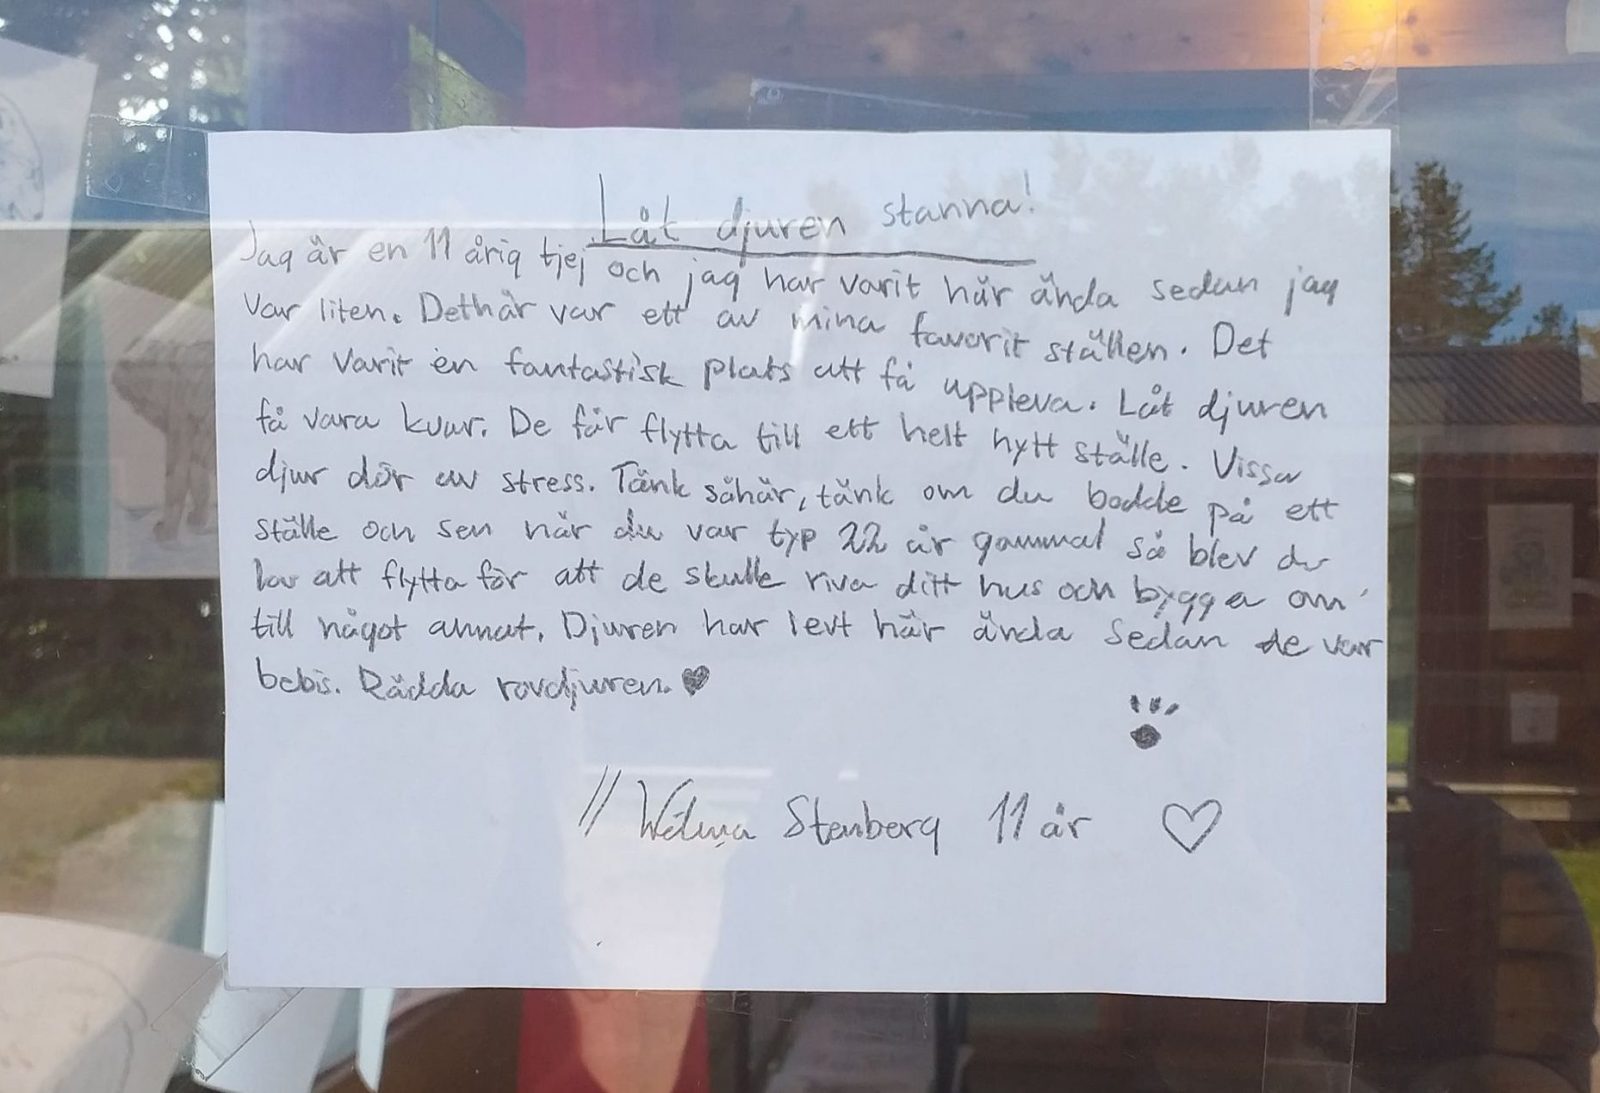 Låt djuren stanna!
Jag är en 11 årig tjej och jag har varit här ända sedan jag
var liten. Dethär var ett av mina favorit ställen. Det
har varit en fantastisk plats att få uppleva. Låt djuren
få vara kvar. De får flytta till ett helt nytt ställe. Vissa
djur dör av stress. Tänk såhär, tänk om du bodde på ett
ställe och sen när du var typ 22 år gammal så blev du
att flytta för att de skulle riva ditt hus och bygga om
till något annat. Djuren har levt här ända sedan de var
bebis. Rädda rovdjuren.♥
// Wilma Stenberg 11 år ♡